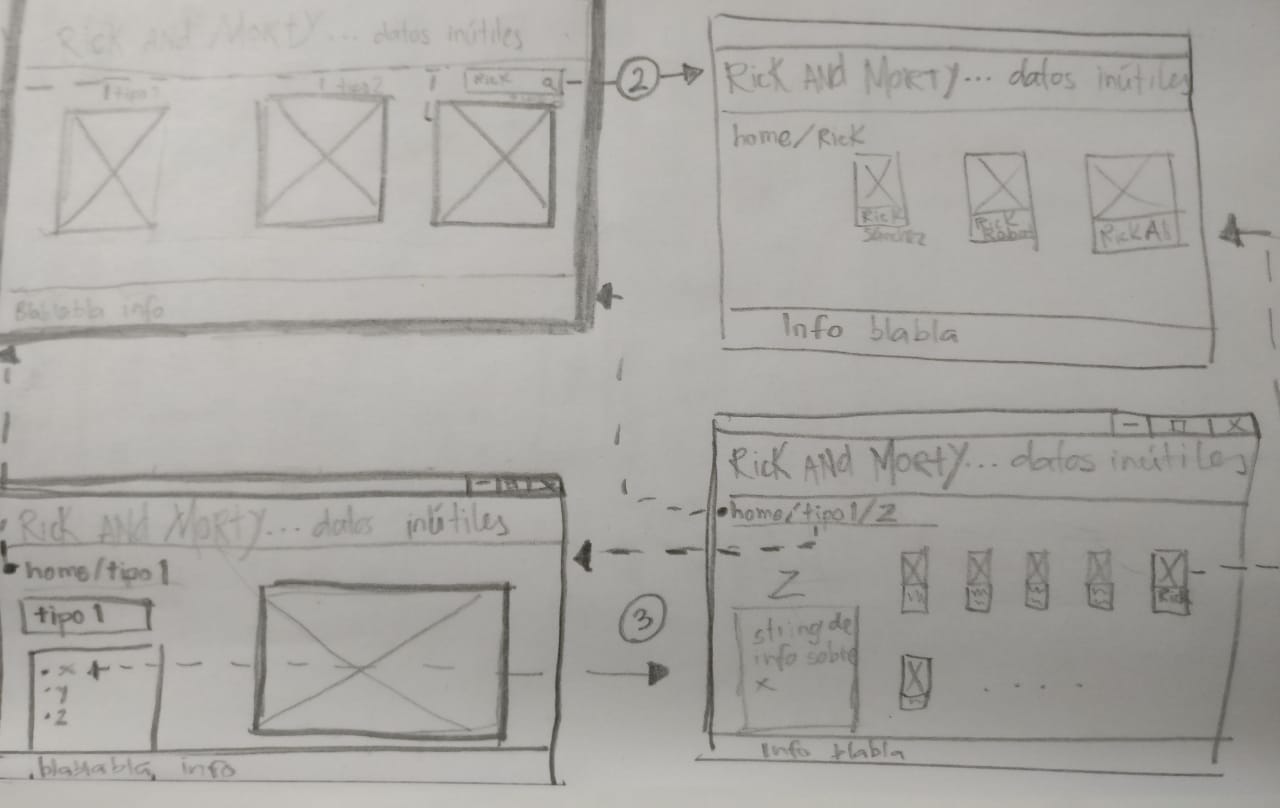 Rick AND MORTY... datos inútiles
1 tipo 1
1 tipo 2
Rick
Blablabla info
2
Rick AND MORTY... datos inútiles
home/Rick
Rick
Sánchez
Rick
info blabla
Rick AND MORTY... datos inútiles
home/tipo1
tipo 1
• x
• y
• z
blablabla info
3
Rick AND MORTY... datos inútiles
home/tipo1/Z
Z
string de
info sobre
x
Rick
. . . .
Info blabla